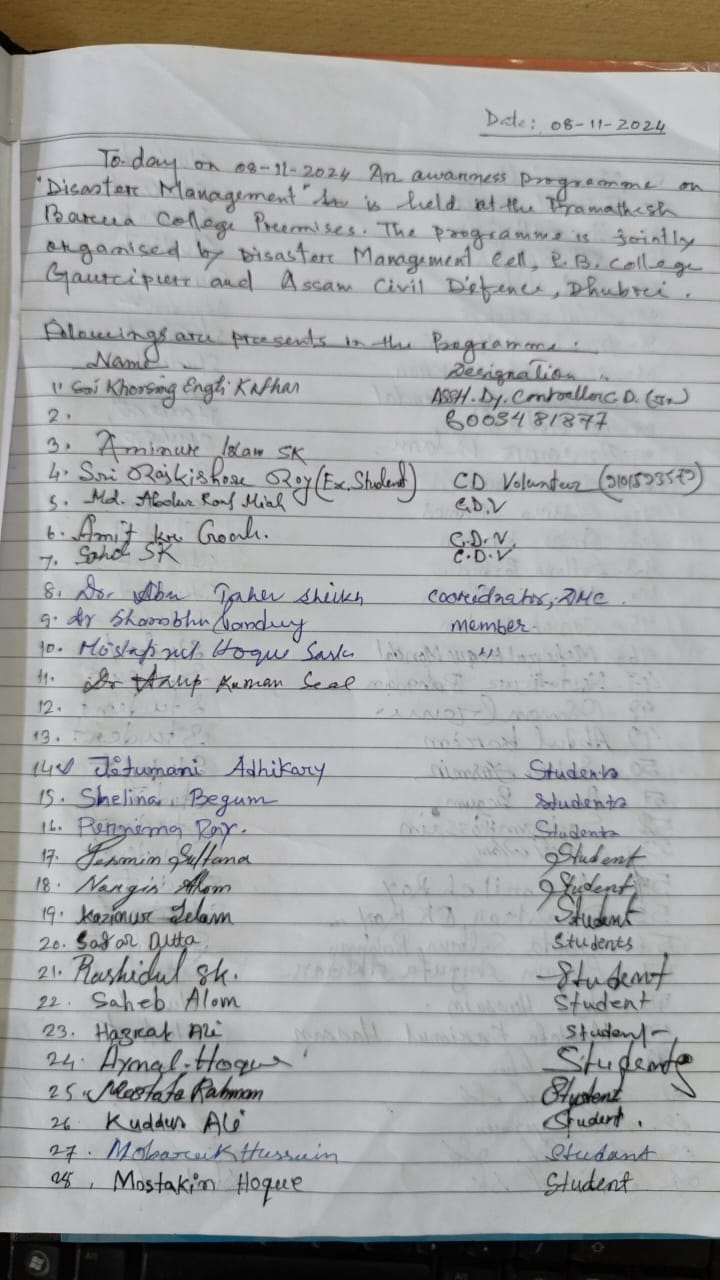 Date: 08-11-2024
To-day on 08-11-2024 An awarness programme on
"Disaster Management" is held at the Pramathesh
Barua College Premises. The programme is jointly
organised by Disaster Management Cell, P.B. College
Gauripur and Assam Civil Defence, Dhubri.
Followings are presents in the Programme:
Name Designation
1. Sri Khorsing Engti Kathar Asstt. Dy. Controller C.D. (Jr)
2. 6003481877
3. Aminur Islam SK
4. Sri Rajkishore Roy (Ex. Student) CD Volunteer
5. Md. Abdur Rouf Miah C.D.V
6. Amit kr. C.D.V.
7. SK C.D.V
8. Dr. Abu Taher Sheikh Coordinator, DMC.
9. Dr Shambhu member.
10. Mostafizul Hoque
11. Dr Anup Kumar Seal
12.
13.
14. Jitumani Adhikary Students
15. Shelina Begum Students
16. Purnima Ray. Students
17. Jesmin Sultana Student
18. Nargis Alom Student
19. Kazimur Islam Student
20. Sagar Dutta Students
21. Rashidul sk. Student
22. Saheb Alom Student
23. Hazrat Ali Student
24. Aynal Hoque Students
25. Mostafa Rahman Student
26. Kuddus Ali Student.
27. Mobarak Hussain Student
28. Mostakim Hoque Student